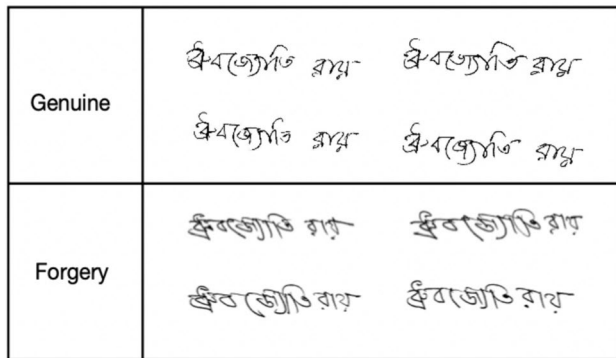 Genuine
ধ্রুবজ্যোতি রায় ধ্রুবজ্যোতি রায়
ধ্রুবজ্যোতি রায় ধ্রুবজ্যোতি রায়
Forgery
ধ্রুবজ্যোতি রায় ধ্রুবজ্যোতি রায়
ধ্রুবজ্যোতি রায় ধ্রুবজ্যোতি রায়